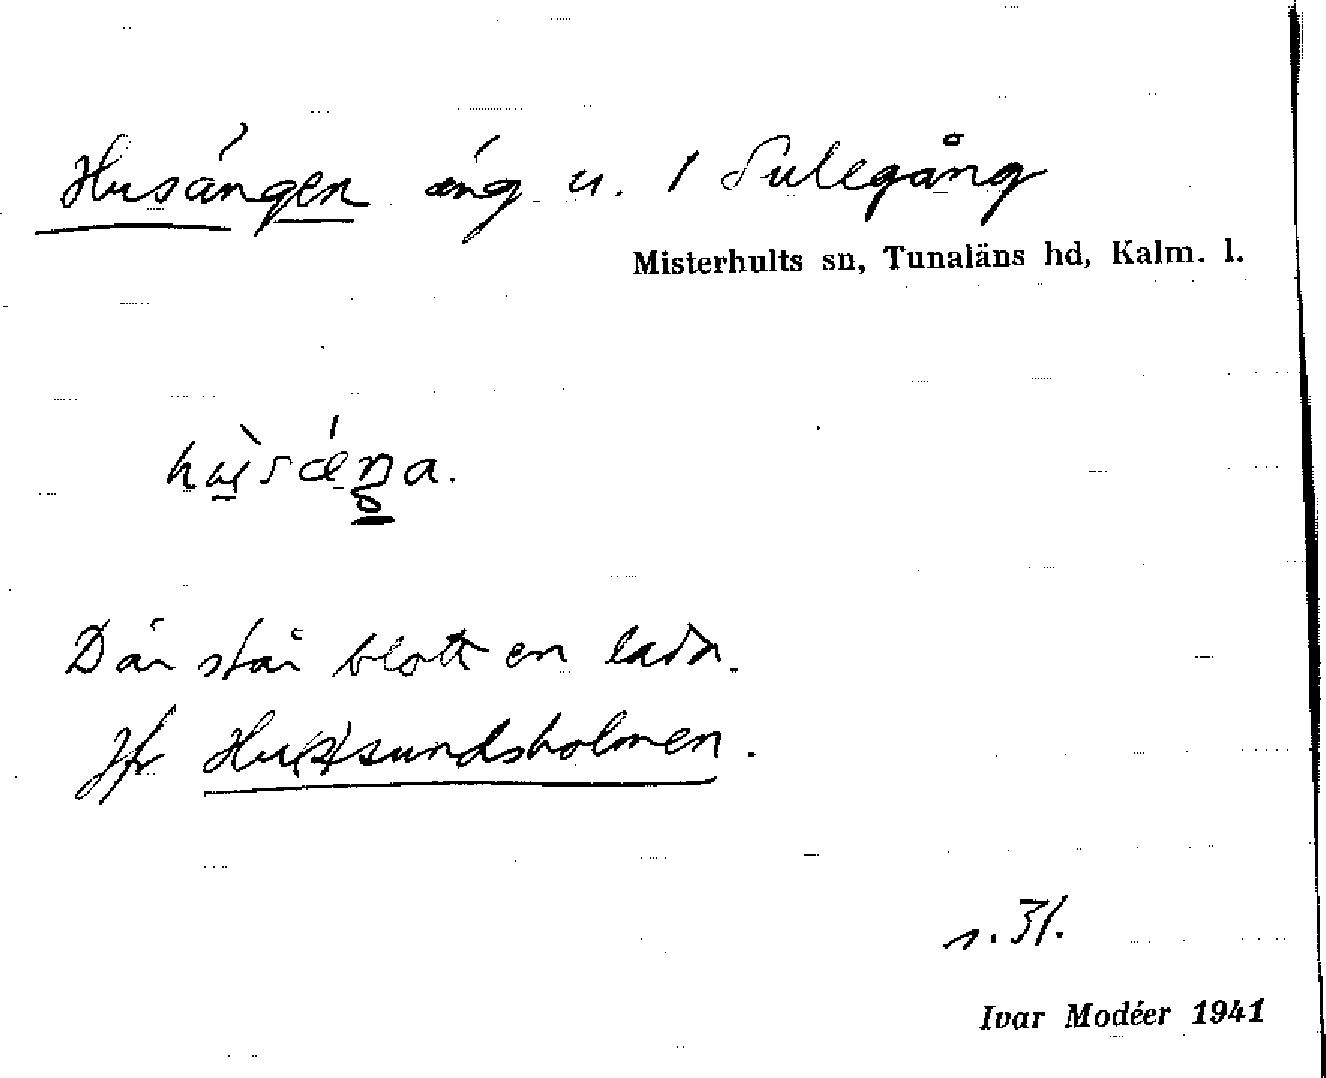 Husängen äng u. 1 Sulegång
Misterhults sn, Tunaläns hd, Kalm. l.
Där står blott en lada.
Jfr Hu(s)sundsholmen.
s. 31.
Ivar Modéer 1941